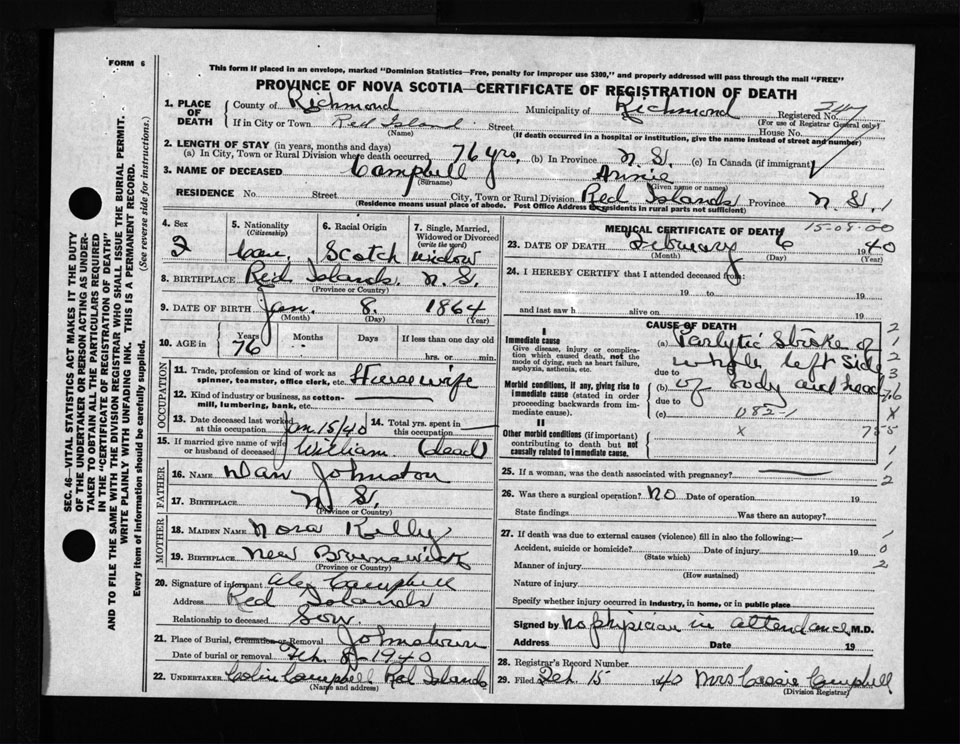 FORM 6
This form if placed in an envelope, marked "Dominion Statistics—Free, penalty for improper use $300," and properly addressed will pass through the mail "FREE"
PROVINCE OF NOVA SCOTIA—CERTIFICATE OF REGISTRATION OF DEATH
1. PLACE OF DEATH County of Richmond Municipality of Richmond Registered No.
(For use of Registrar General only)
If in City or Town Red Island Street House No.
(Name) (If death occurred in a hospital or institution, give the name instead of street and number)
2. LENGTH OF STAY (in years, months and days)
(a) In City, Town or Rural Division where death occurred 76 yrs. (b) In Province N. S. (c) In Canada (if immigrant)
3. NAME OF DECEASED Campbell Annie
(Surname) (Given name or names)
RESIDENCE No. Street City, Town or Rural Division Red Islands Province N. S.
(Residence means usual place of abode. Post Office Address for residents in rural parts not sufficient)
4. Sex 5. Nationality (Citizenship) 6. Racial Origin 7. Single, Married, Widowed or Divorced (write the word)
Can. Scotch widow
8. BIRTHPLACE Red Islands. N. S.
(Province or Country)
9. DATE OF BIRTH Jan. 8. 1864
(Month) (Day) (Year)
10. AGE in Years Months Days If less than one day
76 hrs. or min.
OCCUPATION
11. Trade, profession or kind of work as spinner, teamster, office clerk, etc. Housewife
12. Kind of industry or business, as cotton-mill, lumbering, bank, etc.
13. Date deceased last worked at this occupation Jan 15/40 14. Total yrs. spent in this occupation
15. If married give name of wife or husband of deceased William (dead)
FATHER
16. NAME Dan Johnston
17. BIRTHPLACE N S.
(Province or Country)
MOTHER
18. MAIDEN NAME Nora Kelly
19. BIRTHPLACE New Brunswick
(Province or Country)
20. Signature of informant Alex Campbell
Address Red Islands
Relationship to deceased Son.
21. Place of Burial, Cremation or Removal Johnstown
Date of burial or removal Feb. 8 - 1940
22. UNDERTAKER Colin Campbell Red Islands
(Name and address)
MEDICAL CERTIFICATE OF DEATH 15-08-00
23. DATE OF DEATH February 6 1940
(Month) (Day) (Year)
24. I HEREBY CERTIFY that I attended deceased from:
19 to 19
and last saw h alive on 19
CAUSE OF DEATH
I
Immediate cause
Give disease, injury or complication which caused death, not the mode of dying, such as heart failure, asphyxia, asthenia, etc.
(a) Parlytic Stroke of
whole left side
due to
(b) of body and head
Morbid conditions, if any, giving rise to immediate cause (stated in order proceeding backwards from immediate cause).
due to
(c) 082-1
II
Other morbid conditions (if important) contributing to death but not causally related to immediate cause.
x
25. If a woman, was the death associated with pregnancy?
26. Was there a surgical operation? No Date of operation 19
State findings Was there an autopsy?
27. If death was due to external causes (violence) fill in also the following:—
Accident, suicide or homicide? Date of injury 19
(State which)
Manner of injury
(How sustained)
Nature of injury
Specify whether injury occurred in industry, in home, or in public place
Signed by No physician in attendance, M.D.
Address Date 19
28. Registrar's Record Number
29. Filed Feb. 15 1940 Mrs Cassie Campbell
(Division Registrar)
SEC. 46—VITAL STATISTICS ACT MAKES IT THE DUTY
OF THE UNDERTAKER OR PERSON ACTING AS UNDER-
TAKER TO OBTAIN ALL THE PARTICULARS REQUIRED
IN THE "CERTIFICATE OF REGISTRATION OF DEATH"
AND TO FILE THE SAME WITH THE DIVISION REGISTRAR WHO SHALL ISSUE THE BURIAL PERMIT.
WRITE PLAINLY WITH UNFADING INK. THIS IS A PERMANENT RECORD.
Every item of information should be carefully supplied. (See reverse side for instructions.)